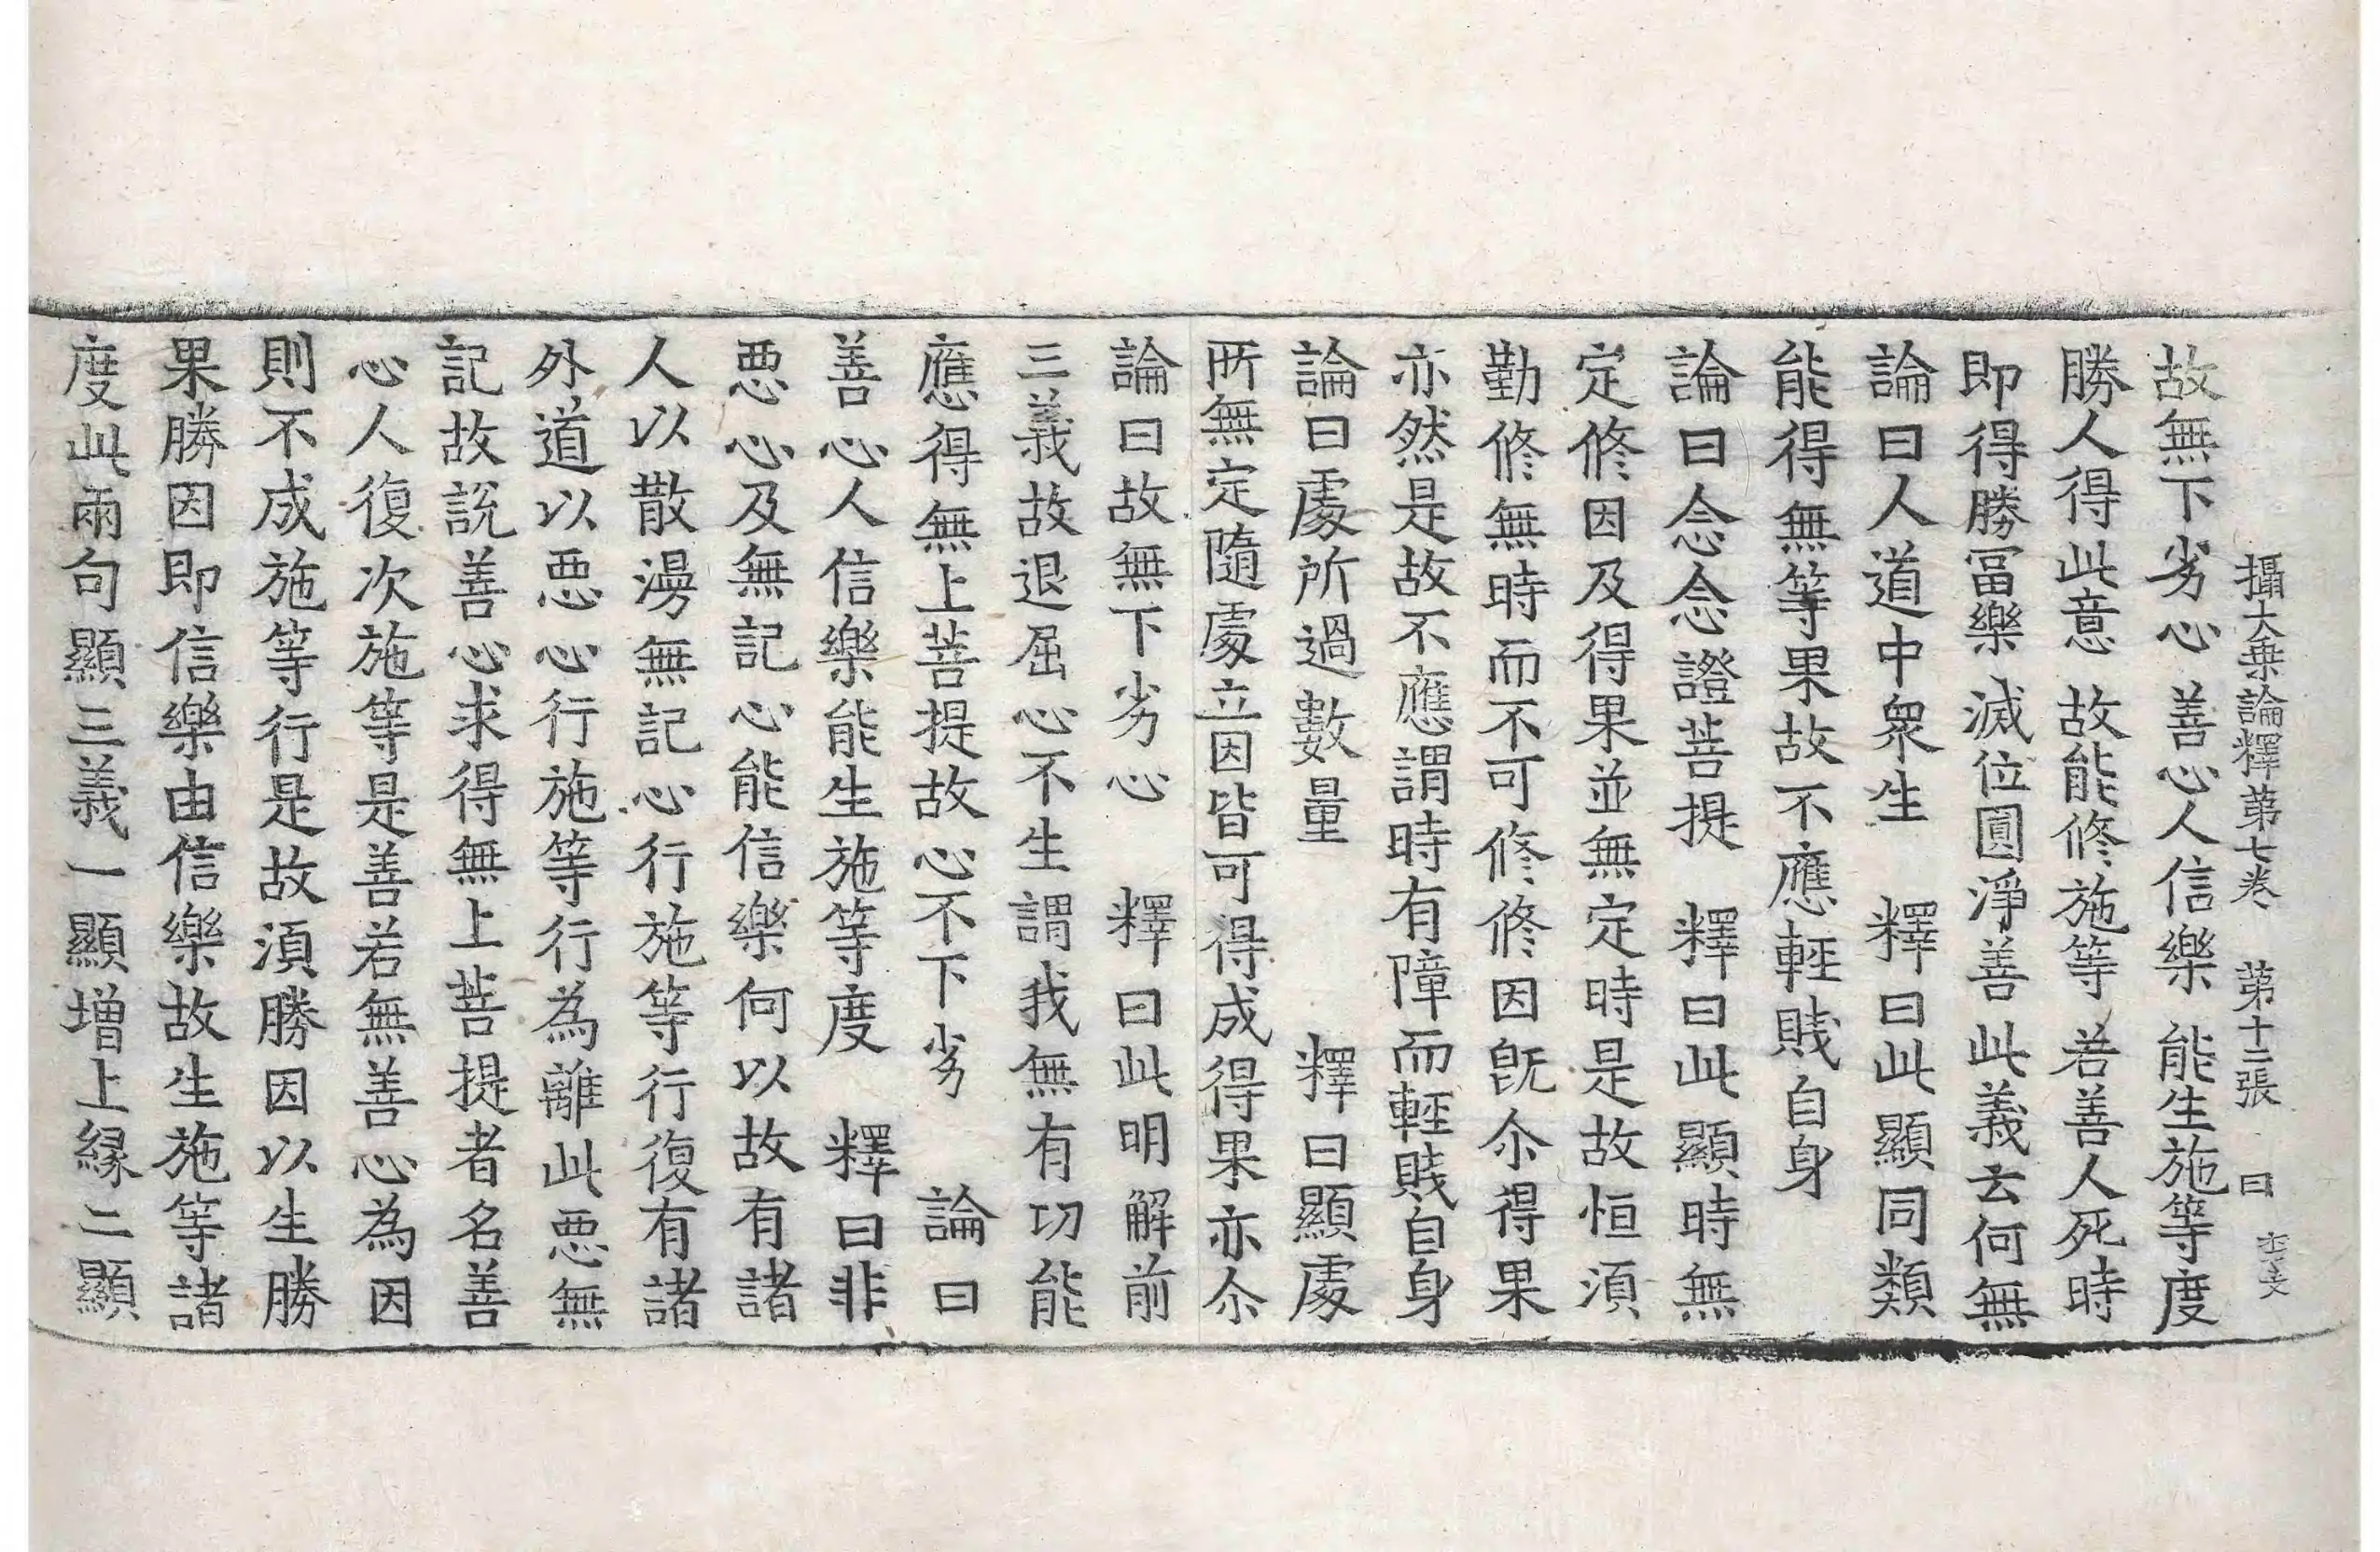 攝大乗論釋第七卷　第十二張　曰
故無下劣心　善心人信樂　能生施等度
勝人得此意　故能修施等　若善人死時
即得勝冨樂　滅位圓淨善　此義云何無
論曰人道中衆生　釋曰此顯同類
能得無等果故不應輕賎自身
論曰念念證菩提　釋曰此顯時無
定修因及得果並無定時是故恒湏
勤修無時而不可修修因旣尒得果
亦然是故不應謂時有障而輕賎自身
論曰處所過數量　釋曰顯處
所無定隨處立因皆可得成得果亦尒
論曰故無下劣心　釋曰此明解前
三義故退屈心不生謂我無有功能
應得無上菩提故心不下劣　論曰
善心人信樂能生施等度　釋曰非
惡心及無記心能信樂何以故有諸
人以散漫無記心行施等行復有諸
外道以惡心行施等行為離此惡無
記故説善心求得無上菩提者名善
心人復次施等是善若無善心為因
則不成施等行是故湏勝因以生勝
果勝因即信樂由信樂故生施等諸
度此兩句顯三義一顯增上縁二顯